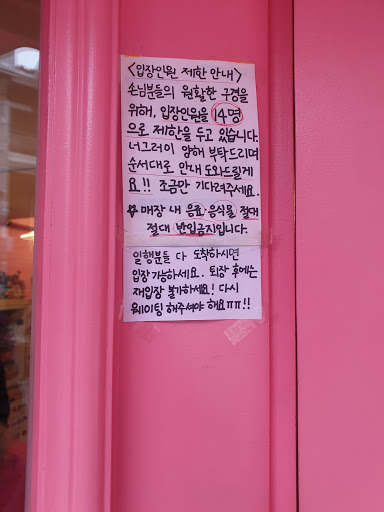 <입장인원 제한 안내>
손님분들의 원활한 구경을
위해, 입장인원을 14명
으로 제한을 두고 있습니다.
너그러이 양해 부탁드리며
순서대로 안내 도와드릴게
요!! 조금만 기다려주세요.
매장 내 음료·음식물 절대
절대 반입금지입니다.
일행분들 다 도착하시면
입장 가능하세요. 퇴장 후에는
재입장 불가하세요! 다시
웨이팅 해주셔야 해요ㅠㅠ!!